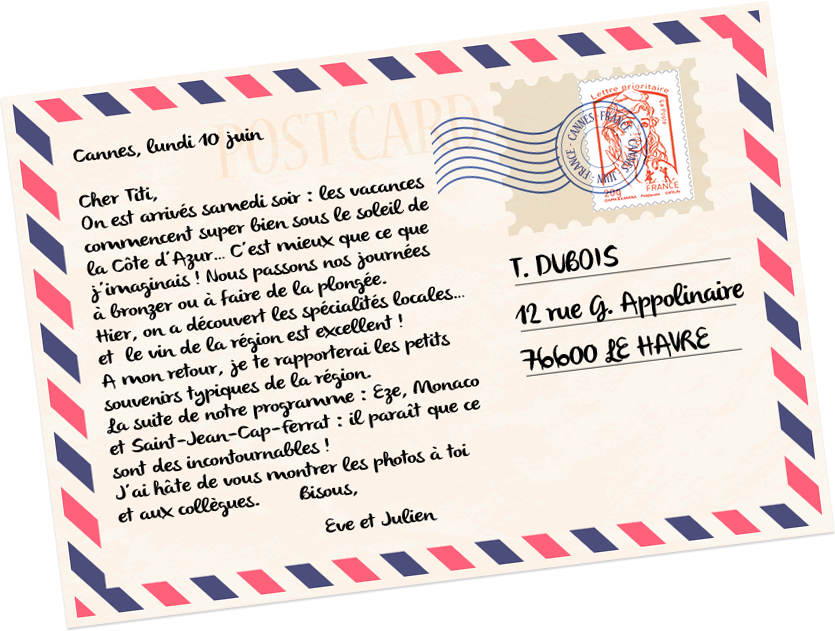 POST CARD
Cannes, lundi 10 juin
Cher Titi,
On est arrivés samedi soir : les vacances
commencent super bien sous le soleil de
la Côte d'Azur... C'est mieux que ce que
j'imaginais ! Nous passons nos journées
à bronzer ou à faire de la plongée.
Hier, on a découvert les spécialités locales...
et le vin de la région est excellent !
A mon retour, je te rapporterai les petits
souvenirs typiques de la région.
La suite de notre programme : Eze, Monaco
et Saint-Jean-Cap-Ferrat : il paraît que ce
sont des incontournables !
J'ai hâte de vous montrer les photos à toi
et aux collègues.
Bisous,
Eve et Julien
Lettre prioritaire
La Poste
20g
FRANCE
CANNES - FRANCE - CANNES - JUIN - FRANCE -
T. DUBOIS
12 rue G. Appolinaire
76600 LE HAVRE